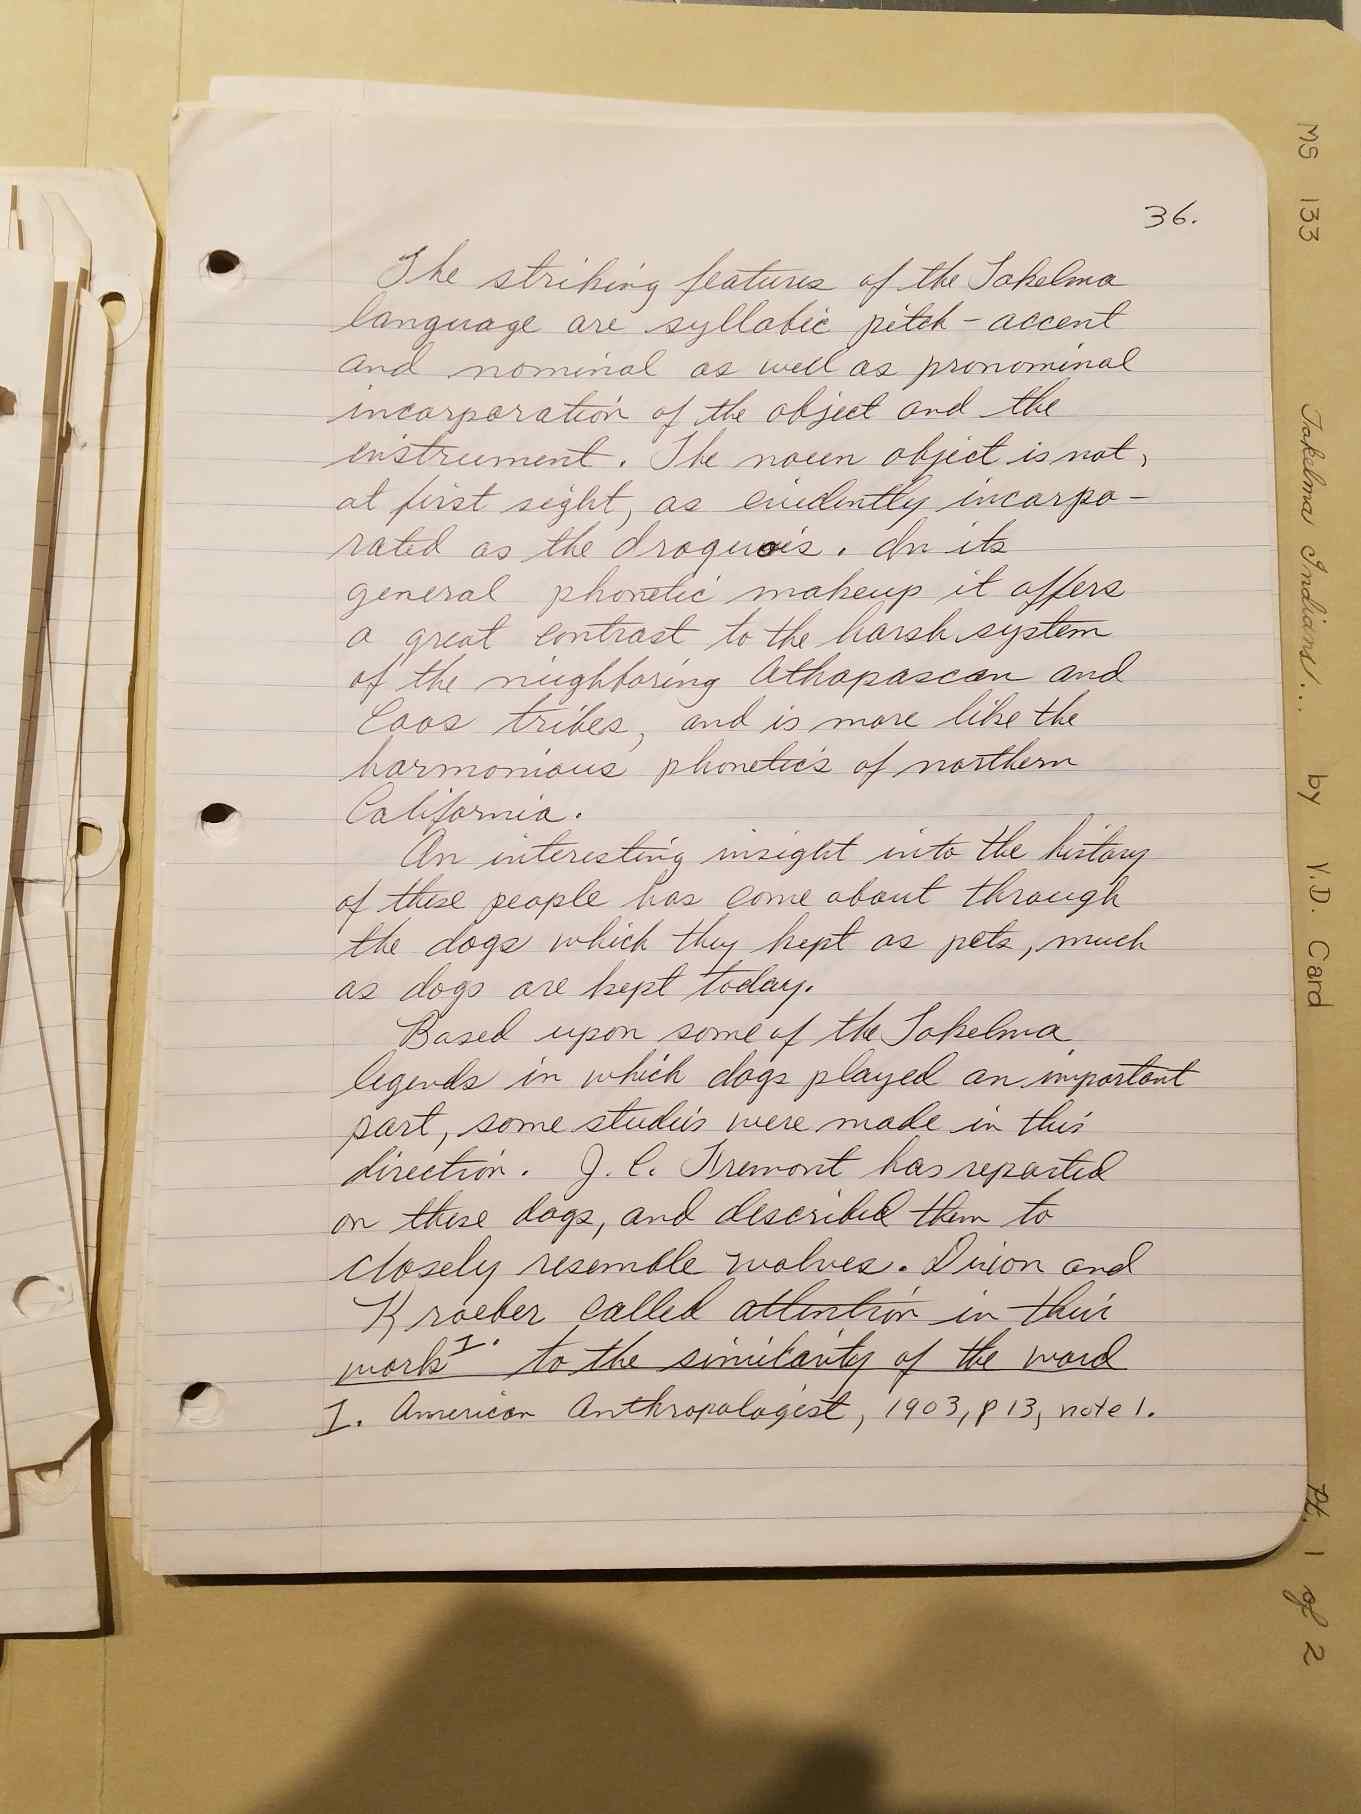 36.
The striking features of the Takelma
language are syllabic pitch-accent
and nominal as well as pronominal
incorporation of the object and the
instrument. The noun object is not,
at first sight, as evidently incorpo-
rated as the Iroquois. In its
general phonetic makeup it offers
a great contrast to the harsh system
of the neighboring Athapascan and
Coos tribes, and is more like the
harmonious phonetics of northern
California.
An interesting insight into the history
of these people has come about through
the dogs which they kept as pets, much
as dogs are kept today.
Based upon some of the Takelma
legends in which dogs played an important
part, some studies were made in this
direction. J. C. Fremont has reported
on these dogs, and described them to
closely resemble wolves. Dixon and
Kroeber called attention in their
work I. to the similarity of the word
I. American Anthropologist, 1903, p 13, note 1.
MS 133 Takelma Indians... by V.D. Card Pt. 1 of 2